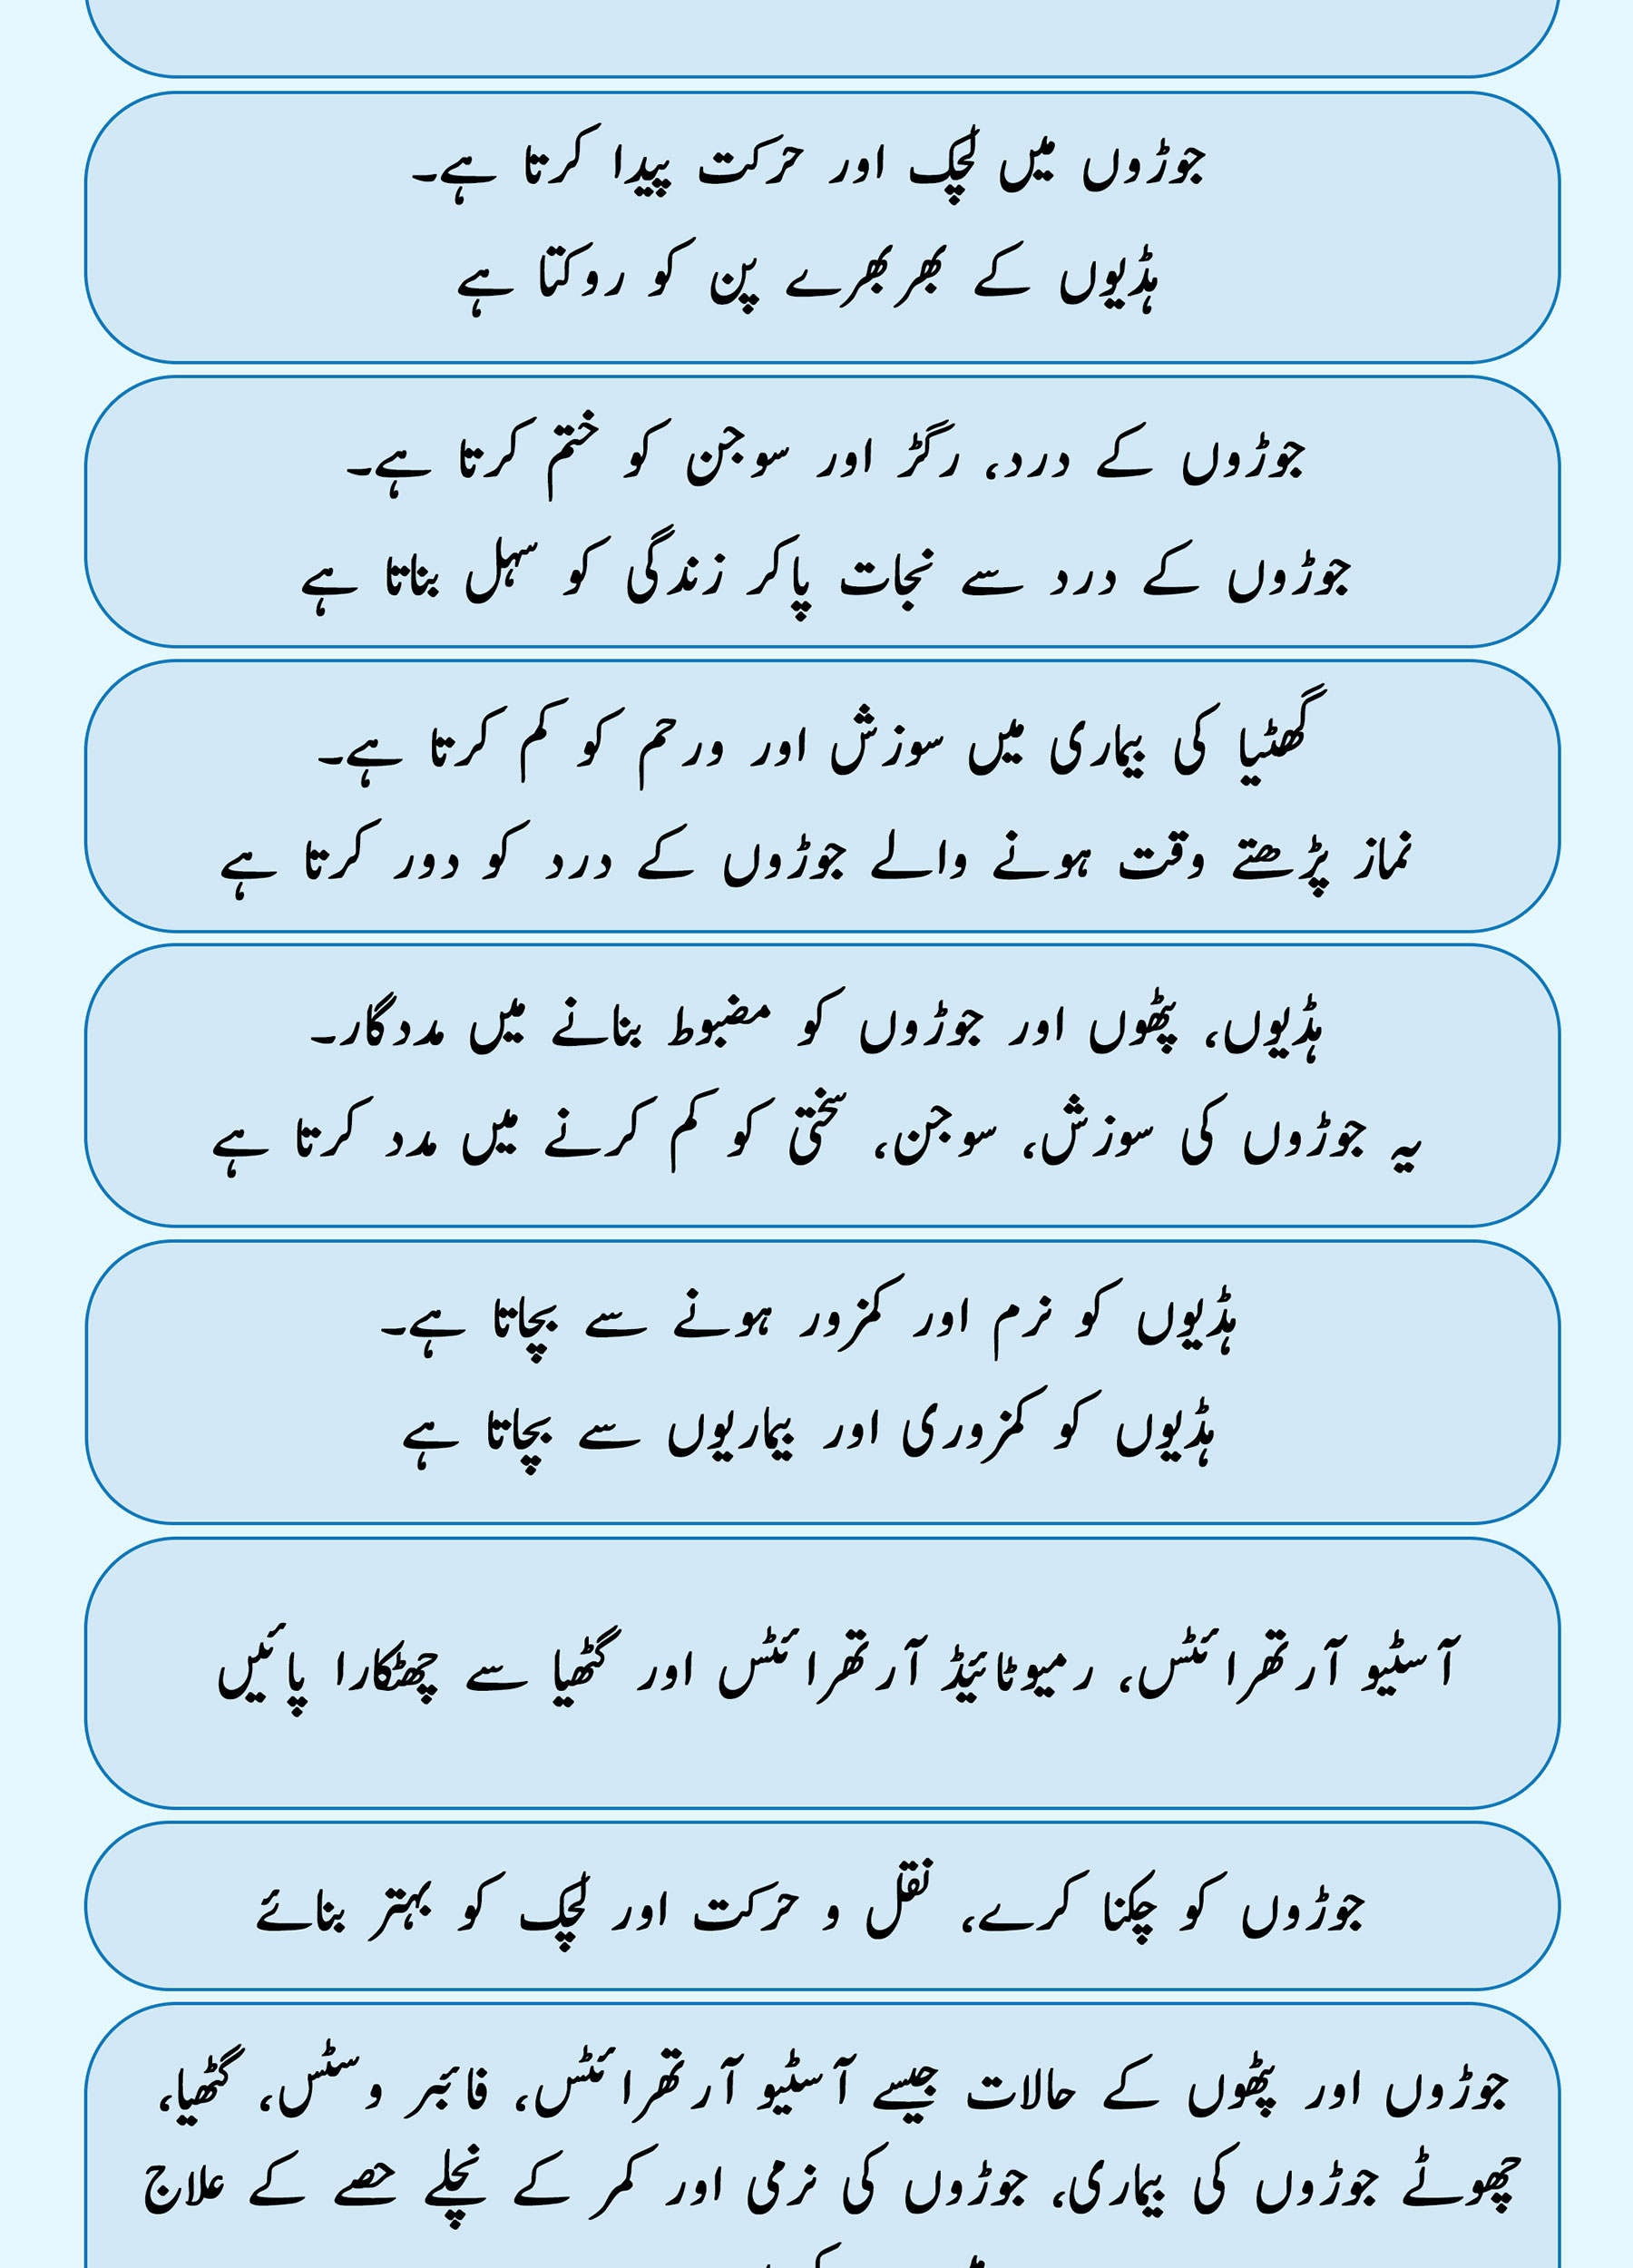 جوڑوں میں لچک اور حرکت پیدا کرتا ہے۔
ہڈیوں کے بھربھرے پن کو روکتا ہے
جوڑوں کے درد، رگڑ اور سوجن کو ختم کرتا ہے۔
جوڑوں کے درد سے نجات پاکر زندگی کو سہل بناتا ہے
گھٹیا کی بیماری میں سوزش اور ورحم کو کم کرتا ہے۔
نماز پڑھتے وقت ہونے والے جوڑوں کے درد کو دور کرتا ہے
ہڈیوں، پٹھوں اور جوڑوں کو مضبوط بنانے میں مددگار۔
یہ جوڑوں کی سوزش، سوجن، سختی کو کم کرنے میں مدد کرتا ہے
ہڈیوں کو نرم اور کمزور ہونے سے بچاتا ہے۔
ہڈیوں کو کمزوری اور بیماریوں سے بچاتا ہے
آسٹیو آرتھرائٹس، رمیوٹائیڈ آرتھرائٹس اور گٹھیا سے چھٹکارا پائیں
جوڑوں کو چکنا کرے، نقل و حرکت اور لچک کو بہتر بنائے
جوڑوں اور پٹھوں کے حالات جیسے آسٹیو آرتھرائٹس، فائبر وسٹس، گٹھیا،
چھوٹے جوڑوں کی بیماری، جوڑوں کی نرمی اور کمر کے نچلے حصے کے علاج